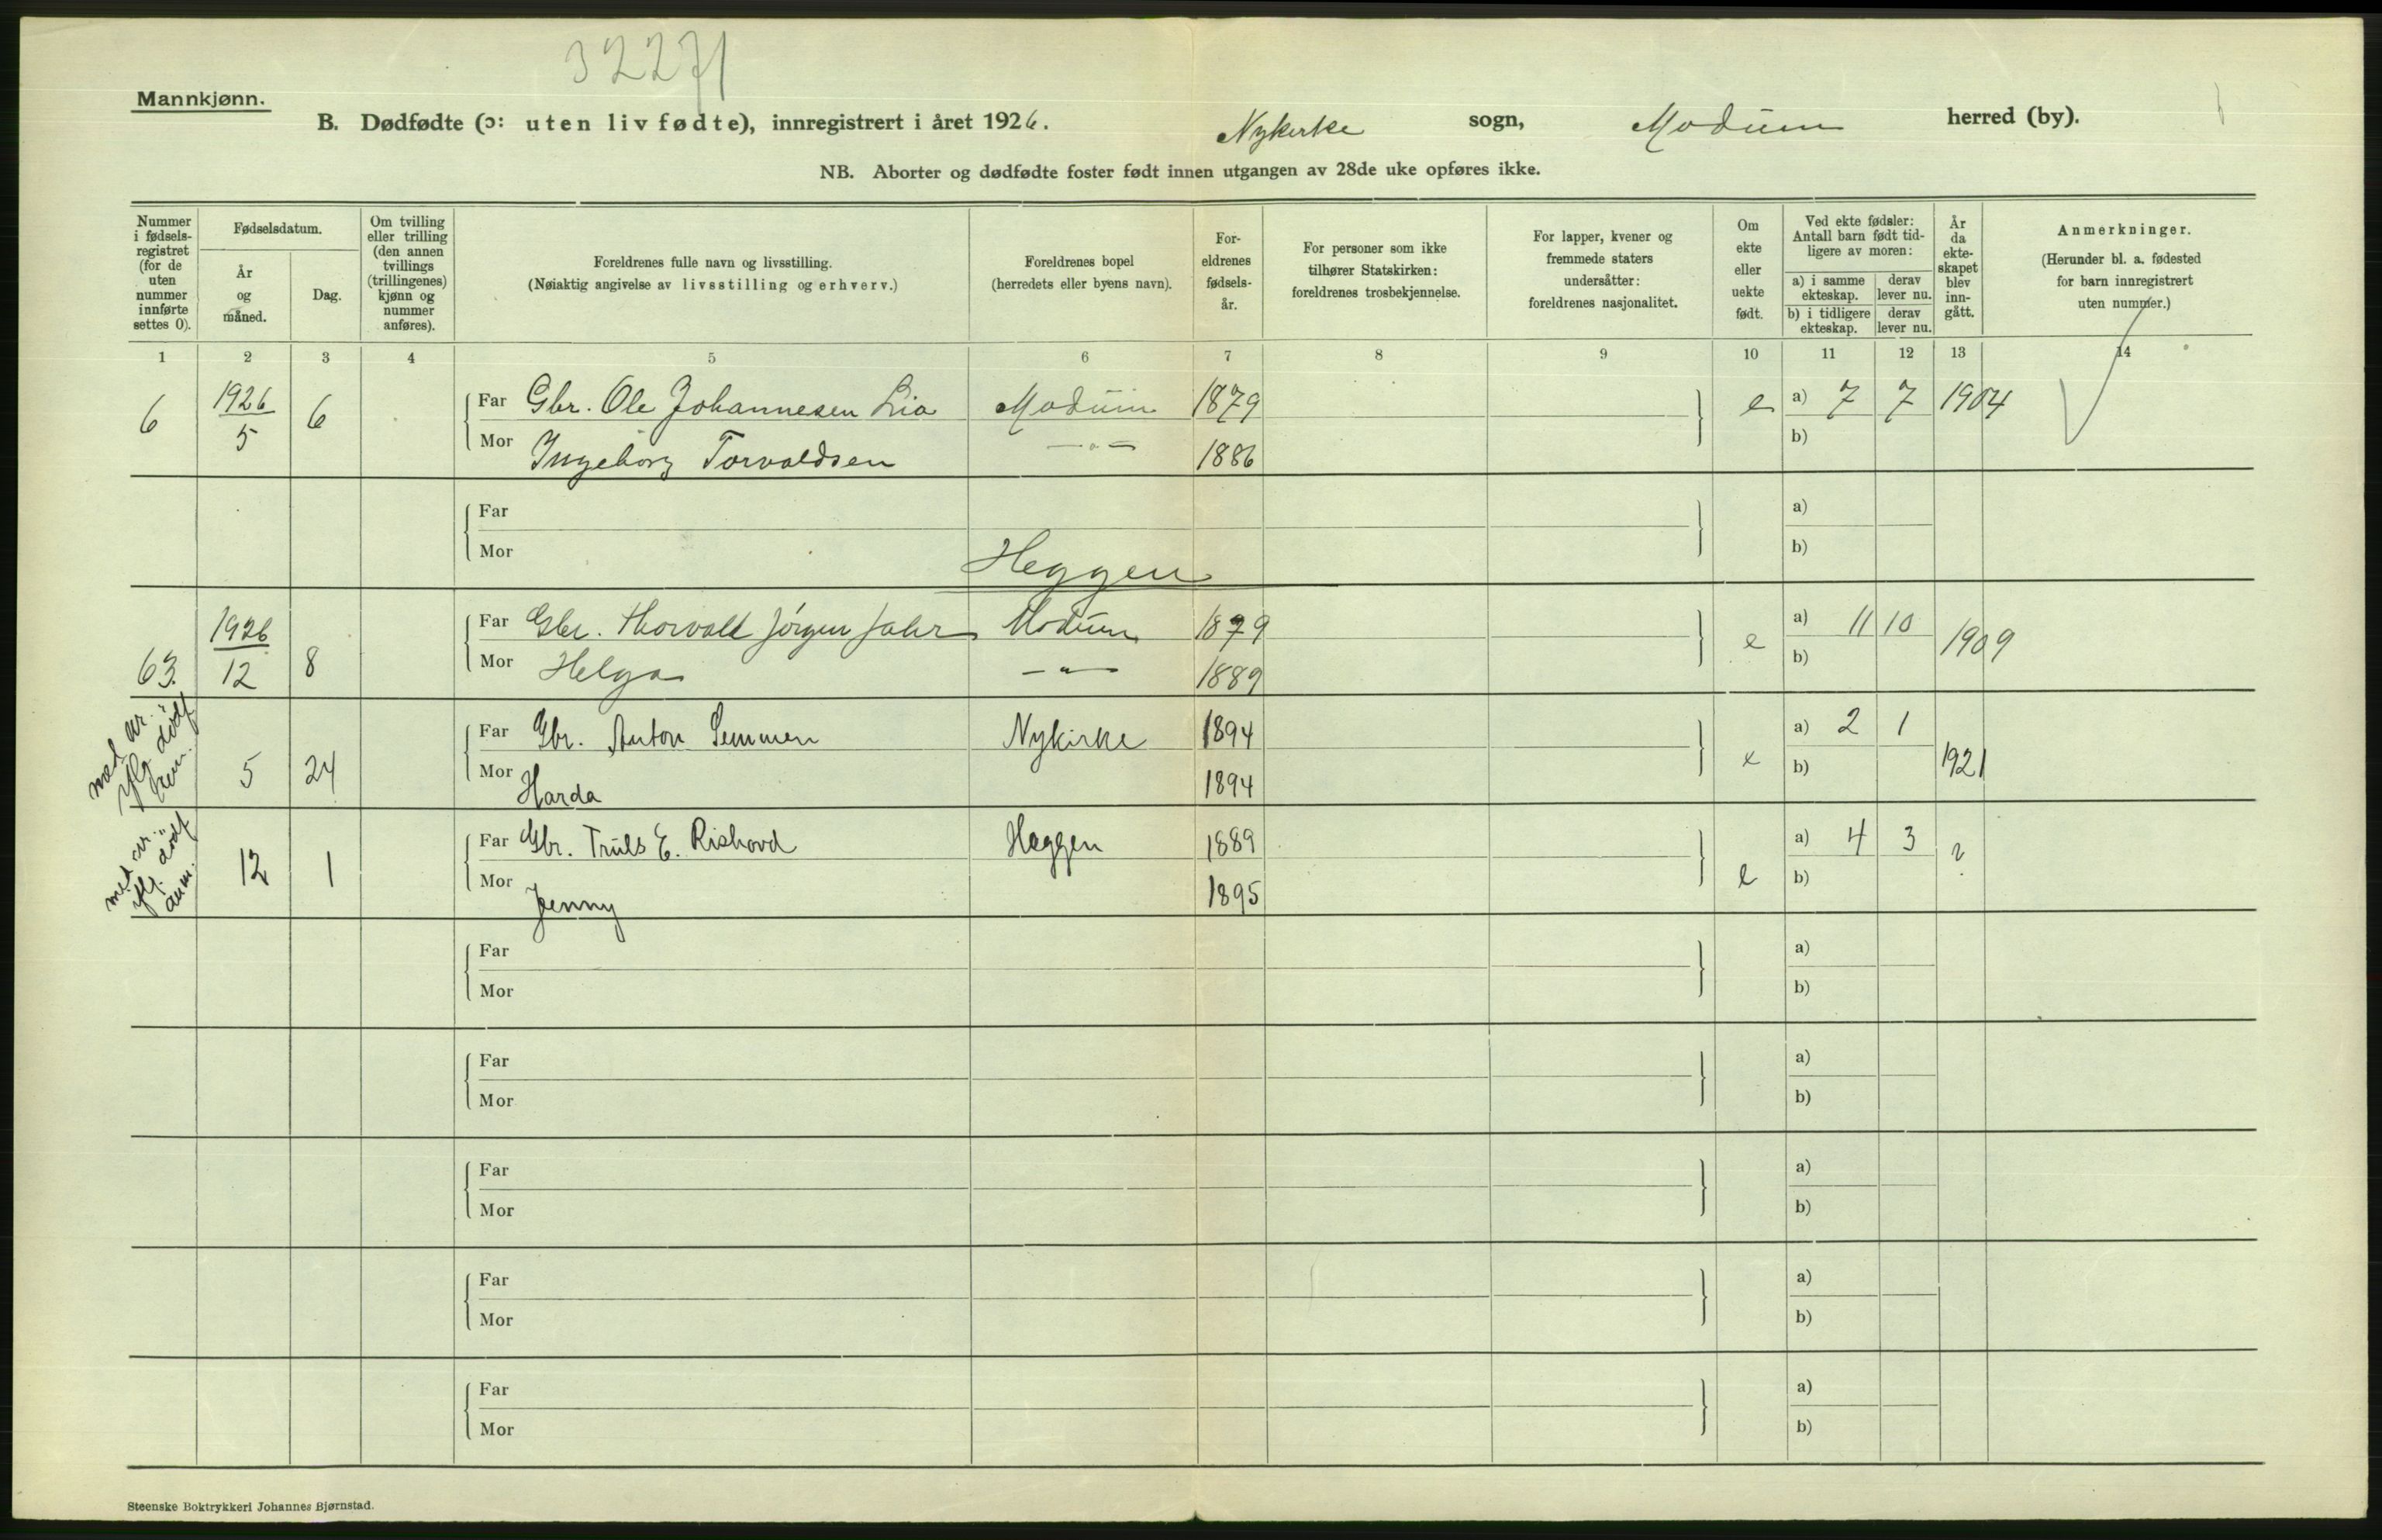 32271
Mannkjønn.
B. Dødfødte (ɔ: uten liv fødte), innregistrert i året 1926. Nykirke sogn, Modum herred (by).
NB. Aborter og dødfødte foster født innen utgangen av 28de uke opføres ikke.
Nummer i fødsels-registret (for de uten nummer innførte settes 0).
Fødselsdatum.
År og måned.
Dag.
Om tvilling eller trilling (den annen tvillings (trillingenes) kjønn og nummer anføres).
Foreldrenes fulle navn og livsstilling.
(Nøiaktig angivelse av livsstilling og erhverv.)
Foreldrenes bopel
(herredets eller byens navn).
For-eldrenes fødsels-år.
For personer som ikke tilhører Statskirken: foreldrenes trosbekjennelse.
For lapper, kvener og fremmede staters undersåtter: foreldrenes nasjonalitet.
Om ekte eller uekte født.
Ved ekte fødsler: Antall barn født tid-ligere av moren:
a) i samme ekteskap. derav lever nu.
b) i tidligere ekteskap. derav lever nu.
År da ekte-skapet blev inn-gått.
Anmerkninger.
(Herunder bl. a. fødested for barn innregistrert uten nummer.)
1 2 3 4 5 6 7 8 9 10 11 12 13 14
6 1926/5 6 Far Gbr. Ole Johannesen Lia Modum 1879 e a) 7 7 1904
Mor Ingeborg Torvaldsen —"— 1886 b)
Far a)
Mor b)
Heggen
63. 1926/12 8 Far Gbr. Thorvald Jörgen Jahr Modum 1879 e a) 11 10 1909
Mor Helga —"— 1889 b)
med nr. iflg. dödf anm.
5 24 Far Gbr. Anton Semmen Nykirke 1894 e a) 2 1 1921
Mor Harda 1894 b)
med nr. iflg. dödf anm.
12 1 Far Gbr. Truls E. Rishovd Heggen 1889 e a) 4 3 ?
Mor Jenny 1895 b)
Far a)
Mor b)
Far a)
Mor b)
Far a)
Mor b)
Far a)
Mor b)
Far a)
Mor b)
Steenske Boktrykkeri Johannes Bjørnstad.